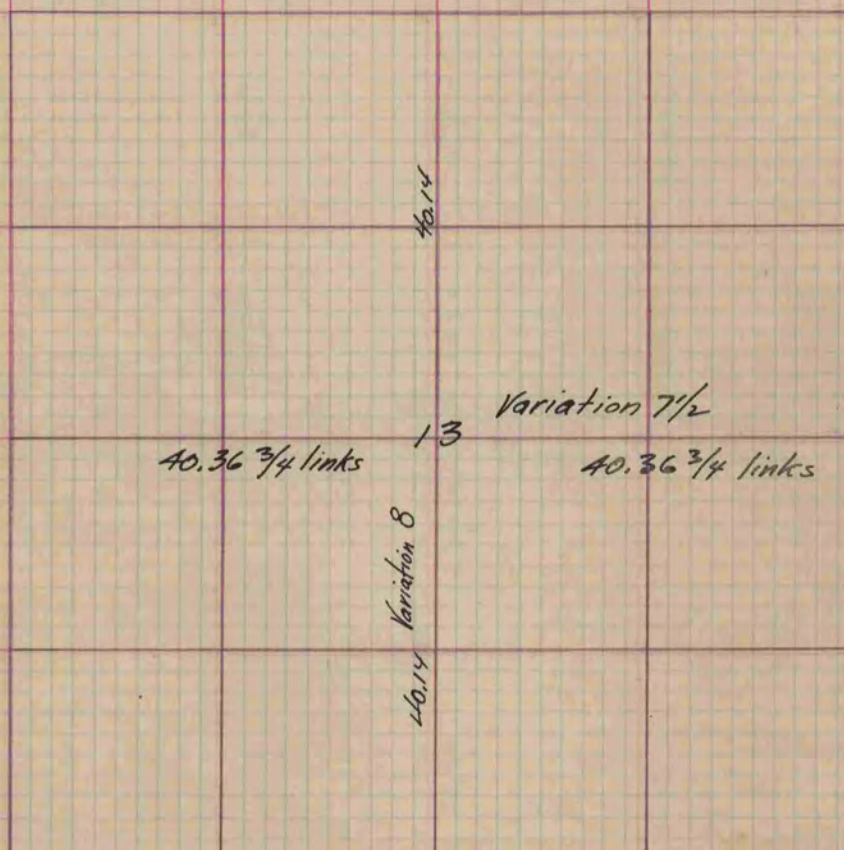 40.14
Variation 7 1/2
13
40.36 3/4 links
40.36 3/4 links
Variation 8
40.14